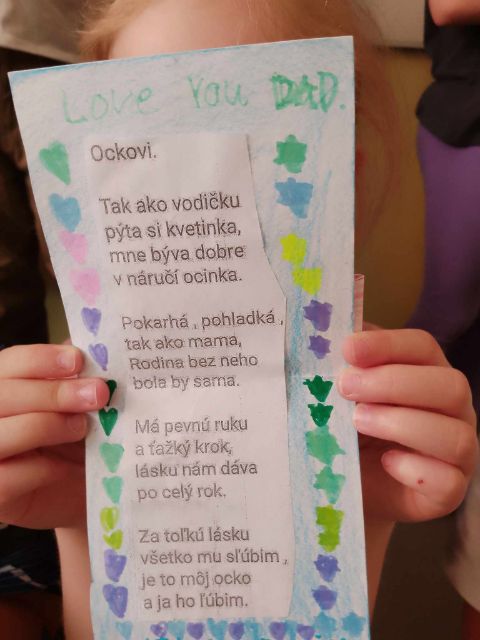 Love You DAD.
Ockovi.
Tak ako vodičku
pýta si kvetinka,
mne býva dobre
v náručí ocinka.
Pokarhá , pohladká ,
tak ako mama,
Rodina bez neho
bola by sama.
Má pevnú ruku
a ťažký krok,
lásku nám dáva
po celý rok.
Za toľkú lásku
všetko mu sľúbim ,
je to môj ocko
a ja ho ľúbim.